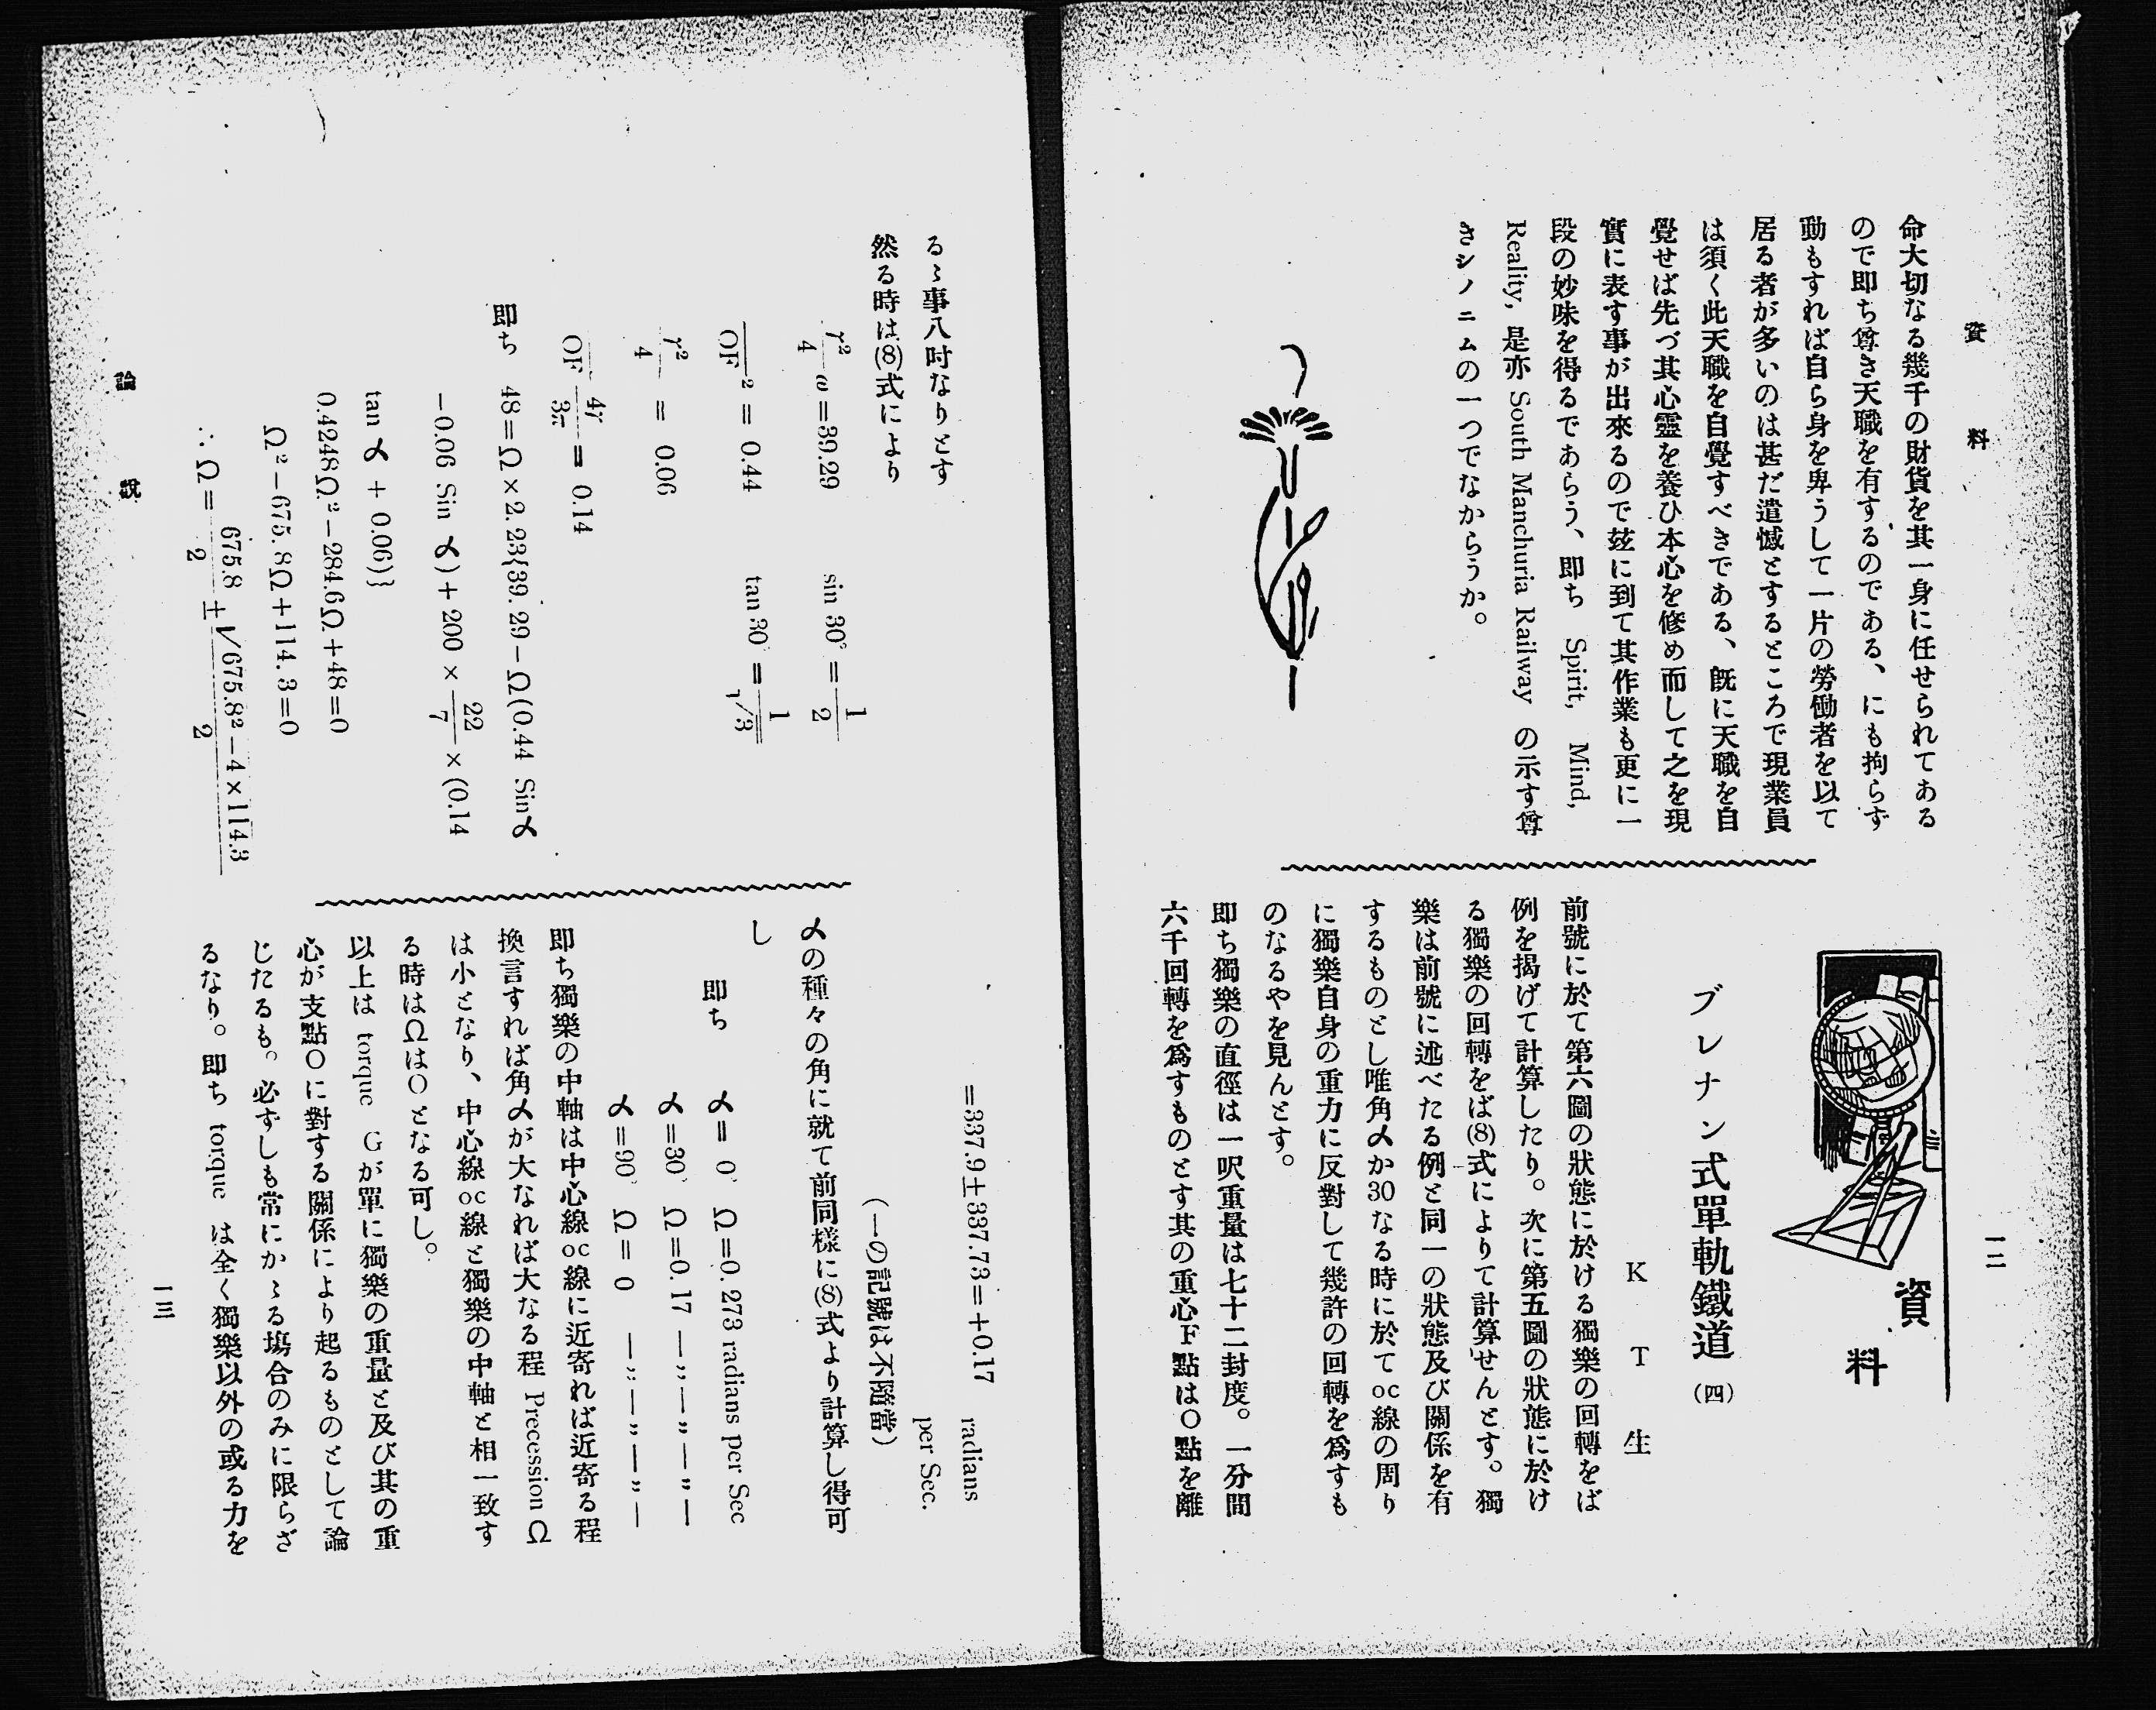 資料
一二
命大切なる幾千の財貨を其一身に任せられてある
ので即ち尊き天職を有するのである、にも拘らず
動もすれば自ら身を卑うして一片の勞働者を以て
居る者が多いのは甚だ遺憾とするところで現業員
は須く此天職を自覺すべきである、既に天職を自
覺せば先づ其心靈を養ひ本心を修め而して之を現
實に表す事が出來るので玆に到て其作業も更に一
段の妙味を得るであらう、即ち Spirit, Mind,
Reality, 是亦 South Manchuria Railway の示す尊
きシノニムの一つでなからうか。
資料
ブレナン式單軌鐵道(四)
K T 生
前號に於て第六圖の狀態に於ける獨樂の回轉をば
例を揭げて計算したり。次に第五圖の狀態に於け
る獨樂の回轉をば(8)式によりて計算せんとす。獨
樂は前號に述べたる例と同一の狀態及び關係を有
するものとし唯角αか30なる時に於てoc線の周り
に獨樂自身の重力に反對して幾許の回轉を爲すも
のなるやを見んとす。
即ち獨樂の直徑は一呎重量は七十二封度。一分間
六千回轉を爲すものとす其の重心F點はO點を離
るゝ事八吋なりとす
然る時は(8)式により
r²/4 ω=39.29 sin 30°=1/2
OF² = 0.44 tan 30°=1/√3
r²/4 = 0.06
OF 4r/3π = 0.14
即ち 48=Ω×2.23{39.29−Ω(0.44 Sinα
−0.06 Sin α)+200×22/7×(0.14
tan α + 0.06)}
0.4248Ω²−284.6Ω+48=0
Ω²−675.8Ω+114.3=0
∴ Ω= 675.8/2 ± √675.8²−4×114.3/2
=337.9±337.73=+0.17
radians
per Sec.
(一の記號は不隨當)
αの種々の角に就て前同樣に(8)式より計算し得可
し
即ち α= 0° Ω=0.273 radians per Sec
α=30° Ω=0.17 —,,—,,—,,—
α=90° Ω= 0 —,,—,,—,,—
即ち獨樂の中軸は中心線oc線に近寄れば近寄る程
換言すれば角αが大なれば大なる程 Precession Ω
は小となり、中心線oc線と獨樂の中軸と相一致す
る時はΩはOとなる可し。
以上は torque Gが單に獨樂の重量と及び其の重
心が支點Oに對する關係により起るものとして論
じたるも。必ずしも常にかゝる塲合のみに限らざ
るなり。即ち torque は全く獨樂以外の或る力を
論說
一三